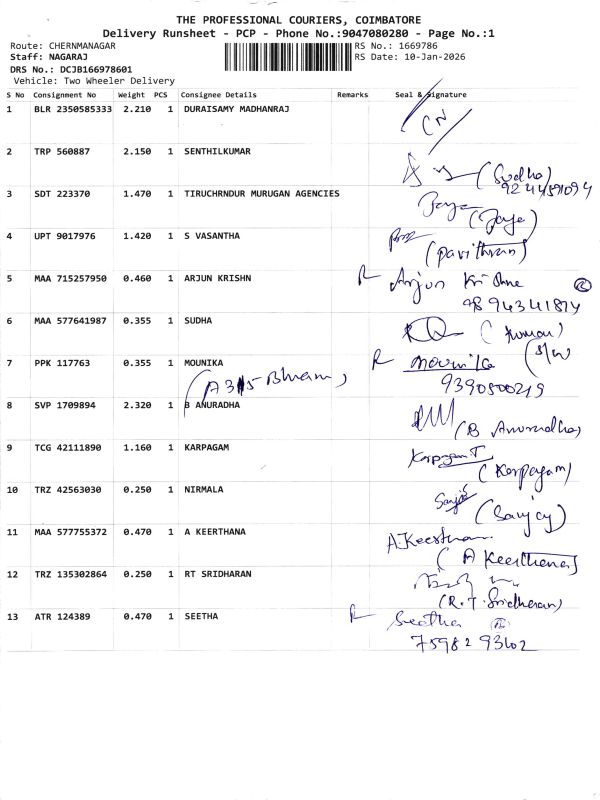 THE PROFESSIONAL COURIERS, COIMBATORE
Delivery Runsheet - PCP - Phone No.:9047080280 - Page No.:1
Route: CHERNMANAGAR RS No.: 1669786
Staff: NAGARAJ RS Date: 10-Jan-2026
DRS No.: DCJB166978601
Vehicle: Two Wheeler Delivery
S No Consignment No Weight PCS Consignee Details Remarks Seal & Signature
1 BLR 2350585333 2.210 1 DURAISAMY MADHANRAJ
CN
2 TRP 560887 2.150 1 SENTHILKUMAR
(Sudha)
3 SDT 223370 1.470 1 TIRUCHRNDUR MURUGAN AGENCIES
Jaya (Jaya)
4 UPT 9017976 1.420 1 S VASANTHA
(pavithran)
5 MAA 715257950 0.460 1 ARJUN KRISHN R Arjun Krishna
9894341874
6 MAA 577641987 0.355 1 SUDHA
(Kumar)
(S/W)
7 PPK 117763 0.355 1 MOUNIKA R Mounika
9390500219
8 SVP 1709894 2.320 1 B ANURADHA
(B Anuradha)
9 TCG 42111890 1.160 1 KARPAGAM Karpagam T
(Karpagam)
10 TRZ 42563030 0.250 1 NIRMALA
(Sanjay)
11 MAA 577755372 0.470 1 A KEERTHANA A.Keerthana
(A Keerthana)
12 TRZ 135302864 0.250 1 RT SRIDHARAN
(R.T.Sridharan)
13 ATR 124389 0.470 1 SEETHA R Seetha
7598293602